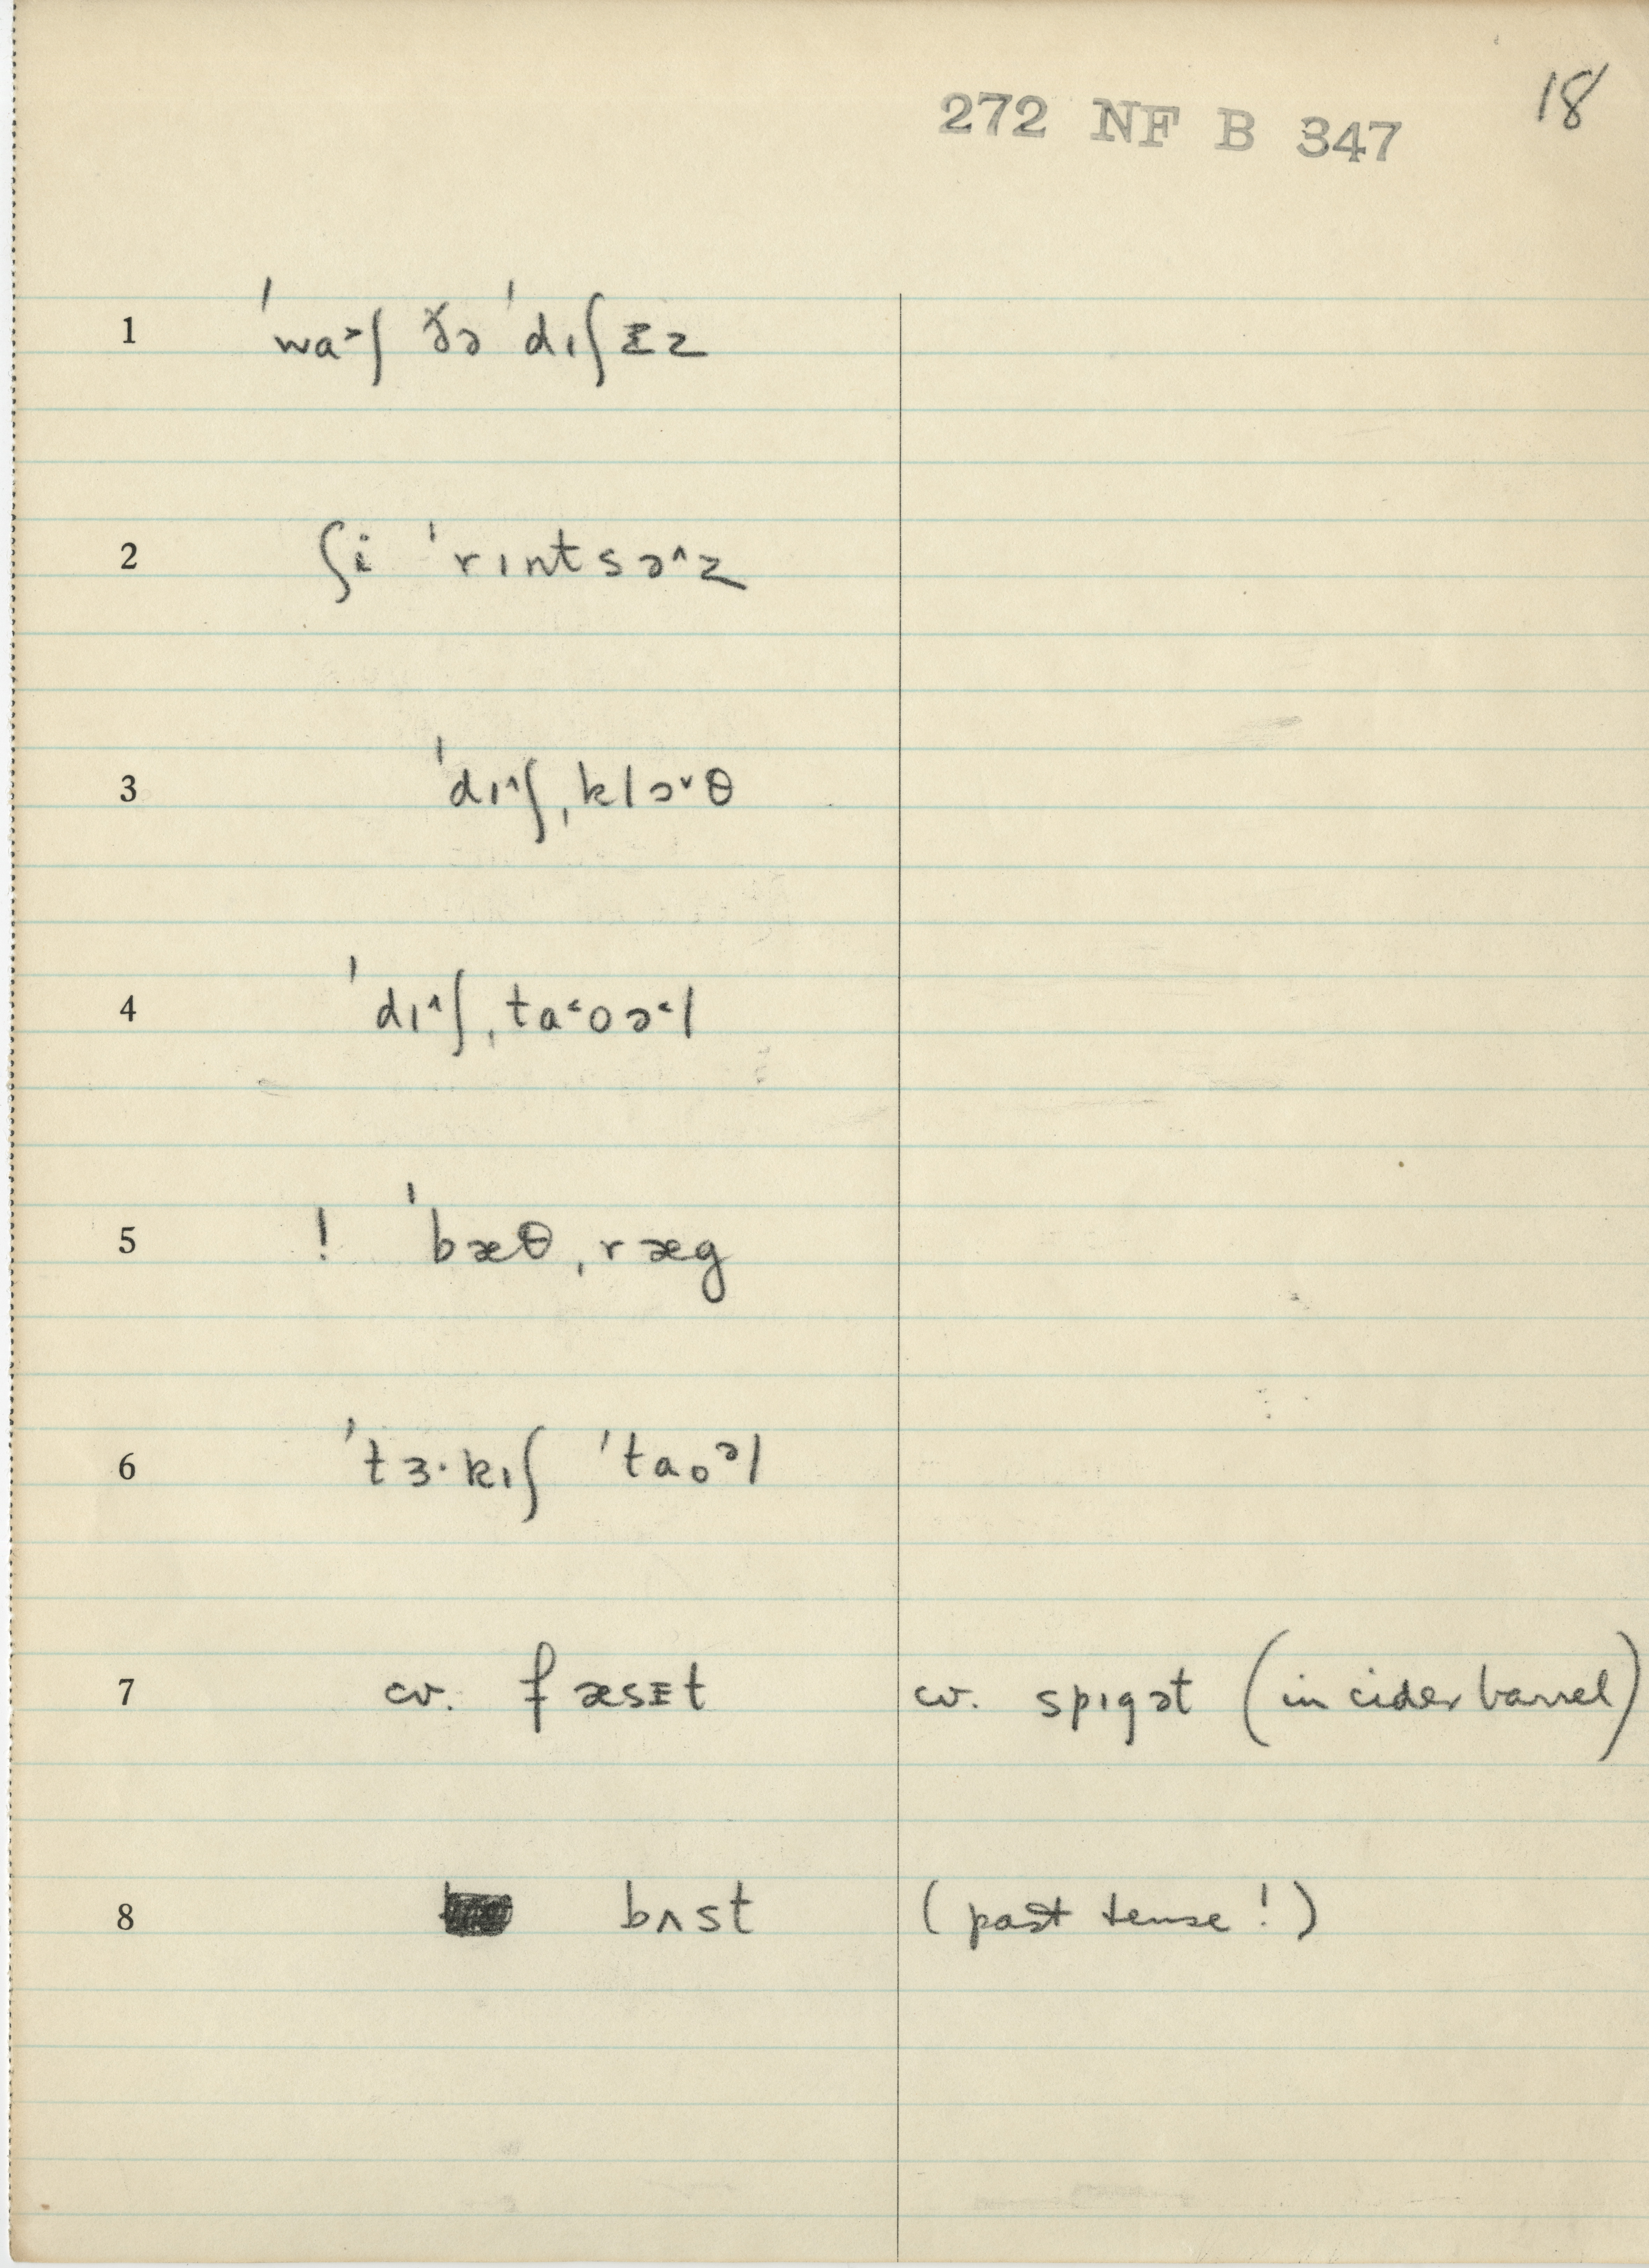 18
272 NF B 347
1 ˈwa˃ʃ ðə ˈdɪʃᵻz
2 ʃi ˈrɪntsə˄z
3 ˈdɪ˄ʃˌklɔ˅θ
4 ˈdɪ˄ʃˌta˂oə˂l
5 ! ˈbæθˌræg
6 ˈtɜ·kɪʃ ˈtaoᵊl
7 cv. fæsᵻt cv. spɪgət (in cider barrel)
8 bʌst (past tense!)